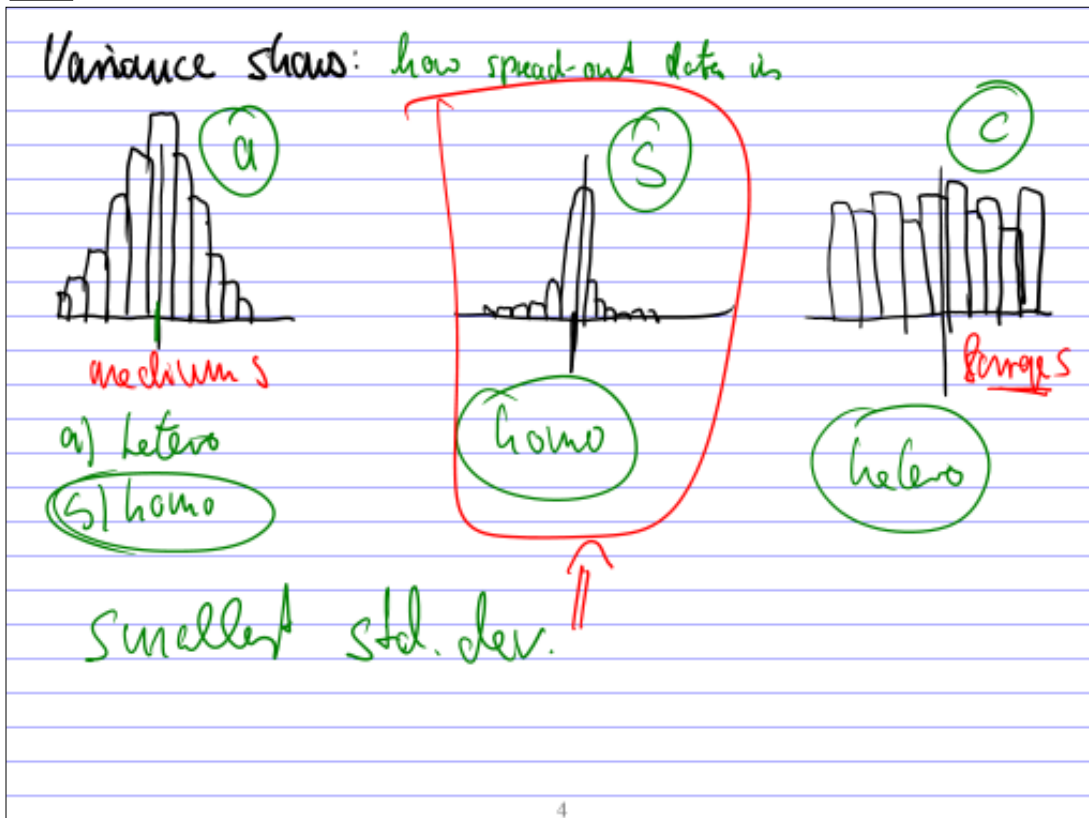 Variance shows: how spread-out data is
a
S
C
medium s
large s
a) hetero
homo
hetero
S) homo
smallest std. dev.
4